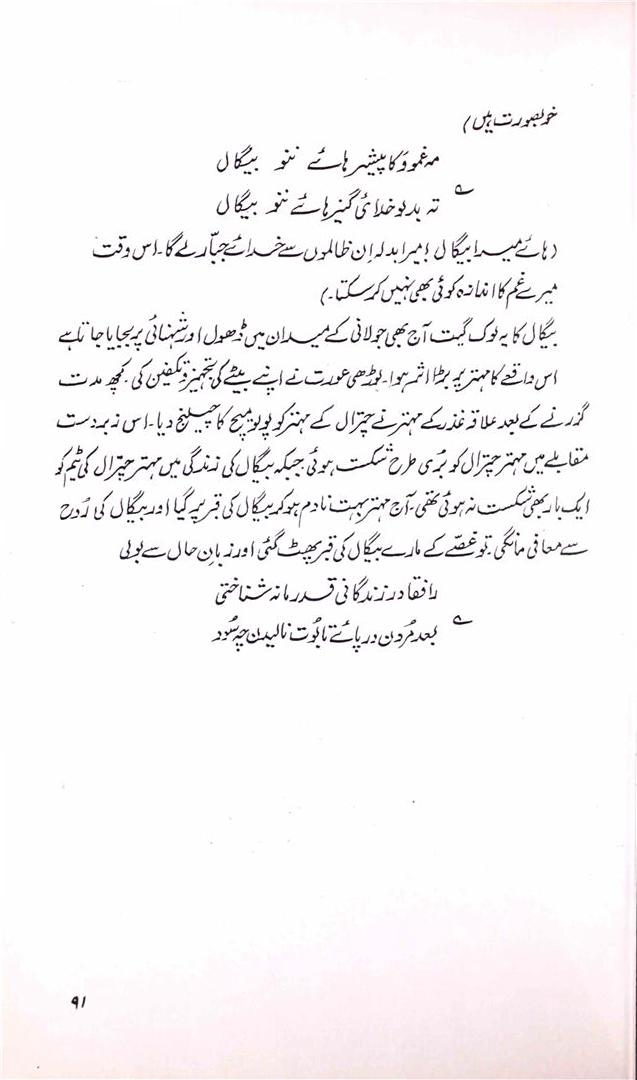 خوبصورت ہیں)
مہ غموو کا پیشیر ہائے ننو بیگال
تہ بدبو خدائ گنیر ہائے ننو بیگال
(ہائے میرا بیگال! میرا بدلہ اِن ظالموں سے خدائے جبّار لے گا۔ اس وقت
میرے غم کا اندازہ کوئی بھی نہیں کر سکتا۔)
بیگال کا یہ لوک گیت آج بھی جولانی کے میدان میں ڈھول اور شہنائی پر بجایا جاتا ہے
اس واقعے کا مہتر پر بڑا اثر ہوا۔ بوڑھی عورت نے اپنے بیٹے کی تجہیز و تکفین کی۔ کچھ مدت
گزرنے کے بعد علاقہ غذر کے مہتر نے چترال کے مہتر کو پولو میچ کا چیلنج دیا۔ اس زبردست
مقابلے میں مہتر چترال کو بُری طرح شکست ہوئی جبکہ بیگال کی زندگی میں مہتر چترال کی ٹیم کو
ایک بار بھی شکست نہ ہوئی تھی۔ آج مہتر بہت نادم ہو کر بیگال کی قبر پر گیا اور بیگال کی رُوح
سے معافی مانگی۔ تو غصّے کے مارے بیگال کی قبر پھٹ گئی اور زبانِ حال سے بولی
رافقا در زندگانی قدر ما نہ شناختی
بعد مُردن در پائے تابُوت نالیدن چہ سُود
۹۱